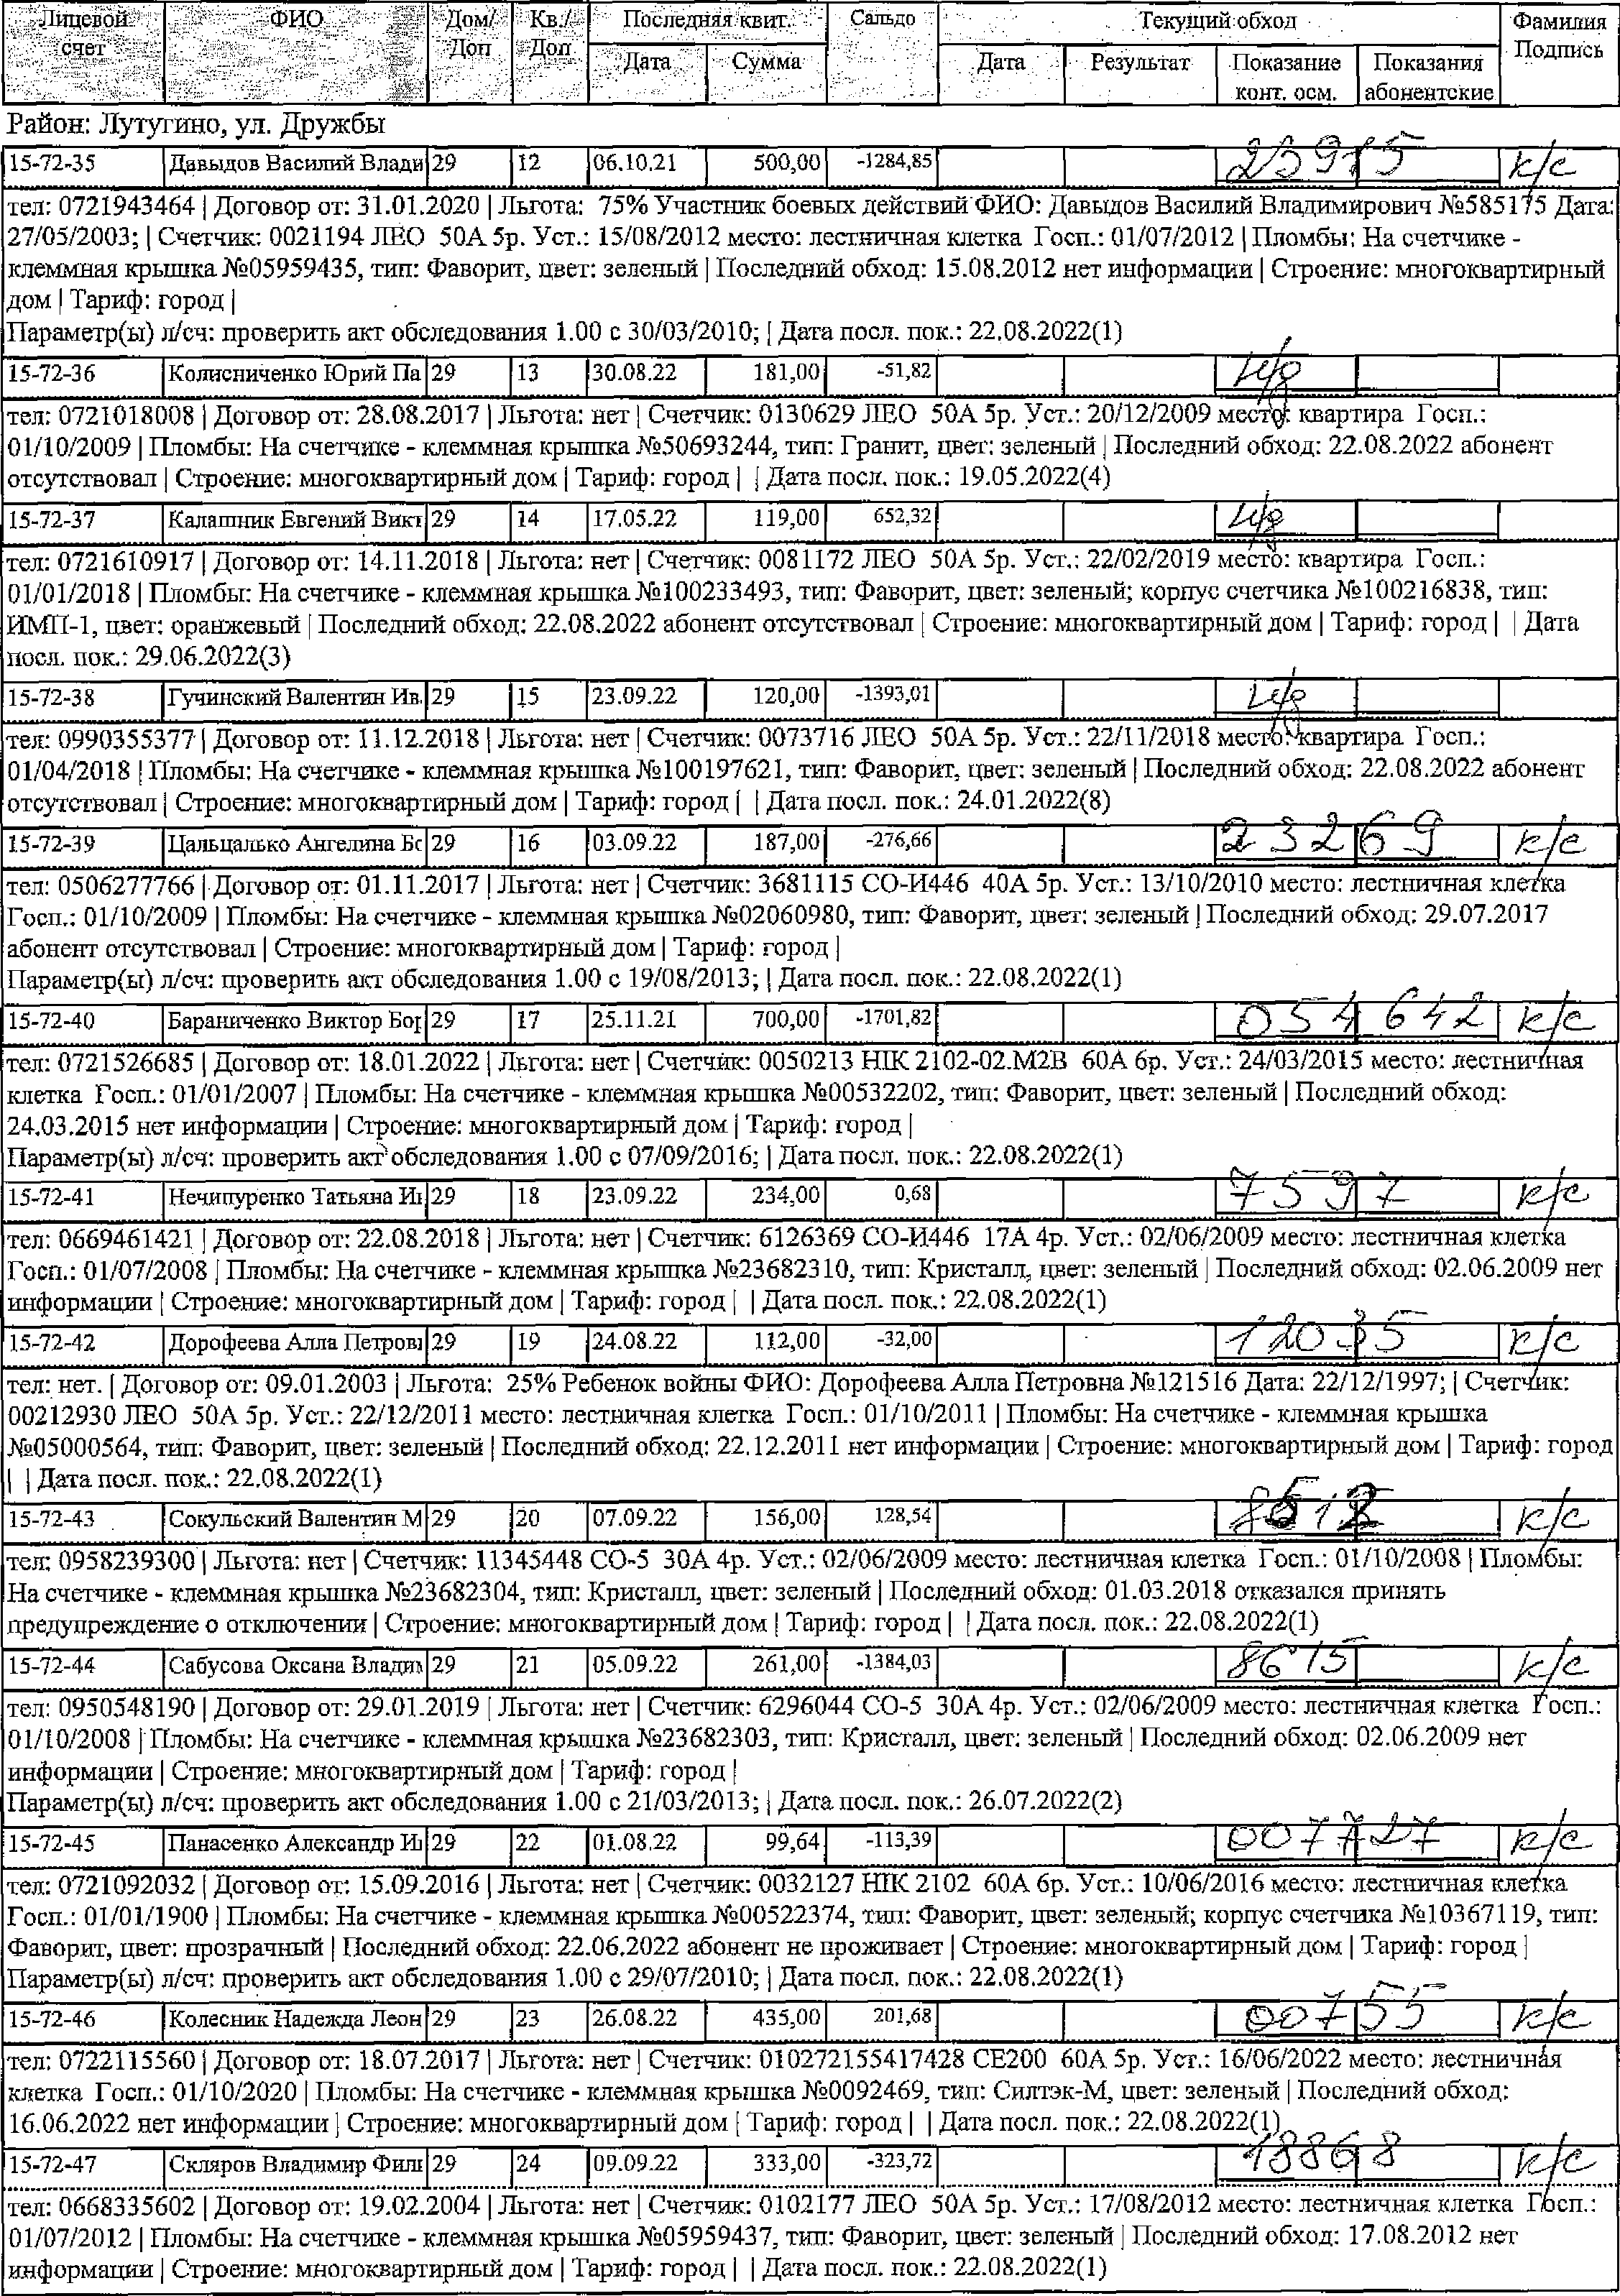 Лицевой счет ФИО Дом/Доп Кв./Доп Последняя квит. Сальдо Текущий обход Фамилия Подпись
Дата Сумма Дата Результат Показание конт. осм. Показания абонентские
Район: Лутугино, ул. Дружбы
15-72-35 Давыдов Василий Влади 29 12 06.10.21 500,00 -1284,85 23915 к/с
тел: 0721943464 | Договор от: 31.01.2020 | Льгота: 75% Участник боевых действий ФИО: Давыдов Василий Владимирович №585175 Дата:
27/05/2003; | Счетчик: 0021194 ЛЕО 50А 5р. Уст.: 15/08/2012 место: лестничная клетка Госп.: 01/07/2012 | Пломбы: На счетчике -
клеммная крышка №05959435, тип: Фаворит, цвет: зеленый | Последний обход: 15.08.2012 нет информации | Строение: многоквартирный
дом | Тариф: город |
Параметр(ы) л/сч: проверить акт обследования 1.00 с 30/03/2010; | Дата посл. пок.: 22.08.2022(1)
15-72-36 Колисниченко Юрий Па 29 13 30.08.22 181,00 -51,82
тел: 0721018008 | Договор от: 28.08.2017 | Льгота: нет | Счетчик: 0130629 ЛЕО 50А 5р. Уст.: 20/12/2009 место: квартира Госп.:
01/10/2009 | Пломбы: На счетчике - клеммная крышка №50693244, тип: Гранит, цвет: зеленый | Последний обход: 22.08.2022 абонент
отсутствовал | Строение: многоквартирный дом | Тариф: город | | Дата посл. пок.: 19.05.2022(4)
15-72-37 Калашник Евгений Викт 29 14 17.05.22 119,00 652,32
тел: 0721610917 | Договор от: 14.11.2018 | Льгота: нет | Счетчик: 0081172 ЛЕО 50А 5р. Уст.: 22/02/2019 место: квартира Госп.:
01/01/2018 | Пломбы: На счетчике - клеммная крышка №100233493, тип: Фаворит, цвет: зеленый; корпус счетчика №100216838, тип:
ИМП-1, цвет: оранжевый | Последний обход: 22.08.2022 абонент отсутствовал | Строение: многоквартирный дом | Тариф: город | | Дата
посл. пок.: 29.06.2022(3)
15-72-38 Гучинский Валентин Ив. 29 15 23.09.22 120,00 -1393,01
тел: 0990355377 | Договор от: 11.12.2018 | Льгота: нет | Счетчик: 0073716 ЛЕО 50А 5р. Уст.: 22/11/2018 место: квартира Госп.:
01/04/2018 | Пломбы: На счетчике - клеммная крышка №100197621, тип: Фаворит, цвет: зеленый | Последний обход: 22.08.2022 абонент
отсутствовал | Строение: многоквартирный дом | Тариф: город | | Дата посл. пок.: 24.01.2022(8)
15-72-39 Цальцалько Ангелина Бо 29 16 03.09.22 187,00 -276,66 23269 к/с
тел: 0506277766 | Договор от: 01.11.2017 | Льгота: нет | Счетчик: 3681115 СО-И446 40А 5р. Уст.: 13/10/2010 место: лестничная клетка
Госп.: 01/10/2009 | Пломбы: На счетчике - клеммная крышка №02060980, тип: Фаворит, цвет: зеленый | Последний обход: 29.07.2017
абонент отсутствовал | Строение: многоквартирный дом | Тариф: город |
Параметр(ы) л/сч: проверить акт обследования 1.00 с 19/08/2013; | Дата посл. пок.: 22.08.2022(1)
15-72-40 Бараниченко Виктор Бор 29 17 25.11.21 700,00 -1701,82 054642 к/с
тел: 0721526685 | Договор от: 18.01.2022 | Льгота: нет | Счетчик: 0050213 НІК 2102-02.М2В 60А 6р. Уст.: 24/03/2015 место: лестничная
клетка Госп.: 01/01/2007 | Пломбы: На счетчике - клеммная крышка №00532202, тип: Фаворит, цвет: зеленый | Последний обход:
24.03.2015 нет информации | Строение: многоквартирный дом | Тариф: город |
Параметр(ы) л/сч: проверить акт обследования 1.00 с 07/09/2016; | Дата посл. пок.: 22.08.2022(1)
15-72-41 Нечипуренко Татьяна Ин 29 18 23.09.22 234,00 0,68 7597 к/с
тел: 0669461421 | Договор от: 22.08.2018 | Льгота: нет | Счетчик: 6126369 СО-И446 17А 4р. Уст.: 02/06/2009 место: лестничная клетка
Госп.: 01/07/2008 | Пломбы: На счетчике - клеммная крышка №23682310, тип: Кристалл, цвет: зеленый | Последний обход: 02.06.2009 нет
информации | Строение: многоквартирный дом | Тариф: город | | Дата посл. пок.: 22.08.2022(1)
15-72-42 Дорофеева Алла Петров 29 19 24.08.22 112,00 -32,00 12035 к/с
тел: нет. | Договор от: 09.01.2003 | Льгота: 25% Ребенок войны ФИО: Дорофеева Алла Петровна №121516 Дата: 22/12/1997; | Счетчик:
00212930 ЛЕО 50А 5р. Уст.: 22/12/2011 место: лестничная клетка Госп.: 01/10/2011 | Пломбы: На счетчике - клеммная крышка
№05000564, тип: Фаворит, цвет: зеленый | Последний обход: 22.12.2011 нет информации | Строение: многоквартирный дом | Тариф: город
| | Дата посл. пок.: 22.08.2022(1)
15-72-43 Сокульский Валентин М 29 20 07.09.22 156,00 128,54 к/с
тел: 0958239300 | Льгота: нет | Счетчик: 11345448 СО-5 30А 4р. Уст.: 02/06/2009 место: лестничная клетка Госп.: 01/10/2008 | Пломбы:
На счетчике - клеммная крышка №23682304, тип: Кристалл, цвет: зеленый | Последний обход: 01.03.2018 отказался принять
предупреждение о отключении | Строение: многоквартирный дом | Тариф: город | | Дата посл. пок.: 22.08.2022(1)
15-72-44 Сабусова Оксана Влади 29 21 05.09.22 261,00 -1384,03 8615 к/с
тел: 0950548190 | Договор от: 29.01.2019 | Льгота: нет | Счетчик: 6296044 СО-5 30А 4р. Уст.: 02/06/2009 место: лестничная клетка Госп.:
01/10/2008 | Пломбы: На счетчике - клеммная крышка №23682303, тип: Кристалл, цвет: зеленый | Последний обход: 02.06.2009 нет
информации | Строение: многоквартирный дом | Тариф: город |
Параметр(ы) л/сч: проверить акт обследования 1.00 с 21/03/2013; | Дата посл. пок.: 26.07.2022(2)
15-72-45 Панасенко Александр Ин 29 22 01.08.22 99,64 -113,39 007727 к/с
тел: 0721092032 | Договор от: 15.09.2016 | Льгота: нет | Счетчик: 0032127 НІК 2102 60А 6р. Уст.: 10/06/2016 место: лестничная клетка
Госп.: 01/01/1900 | Пломбы: На счетчике - клеммная крышка №00522374, тип: Фаворит, цвет: зеленый; корпус счетчика №10367119, тип:
Фаворит, цвет: прозрачный | Последний обход: 22.06.2022 абонент не проживает | Строение: многоквартирный дом | Тариф: город |
Параметр(ы) л/сч: проверить акт обследования 1.00 с 29/07/2010; | Дата посл. пок.: 22.08.2022(1)
15-72-46 Колесник Надежда Леон 29 23 26.08.22 435,00 201,68 00755 к/с
тел: 0722115560 | Договор от: 18.07.2017 | Льгота: нет | Счетчик: 010272155417428 СЕ200 60А 5р. Уст.: 16/06/2022 место: лестничная
клетка Госп.: 01/10/2020 | Пломбы: На счетчике - клеммная крышка №0092469, тип: Силтэк-М, цвет: зеленый | Последний обход:
16.06.2022 нет информации | Строение: многоквартирный дом | Тариф: город | | Дата посл. пок.: 22.08.2022(1)
15-72-47 Скляров Владимир Фили 29 24 09.09.22 333,00 -323,72 18868 к/с
тел: 0668335602 | Договор от: 19.02.2004 | Льгота: нет | Счетчик: 0102177 ЛЕО 50А 5р. Уст.: 17/08/2012 место: лестничная клетка Госп.:
01/07/2012 | Пломбы: На счетчике - клеммная крышка №05959437, тип: Фаворит, цвет: зеленый | Последний обход: 17.08.2012 нет
информации | Строение: многоквартирный дом | Тариф: город | | Дата посл. пок.: 22.08.2022(1)